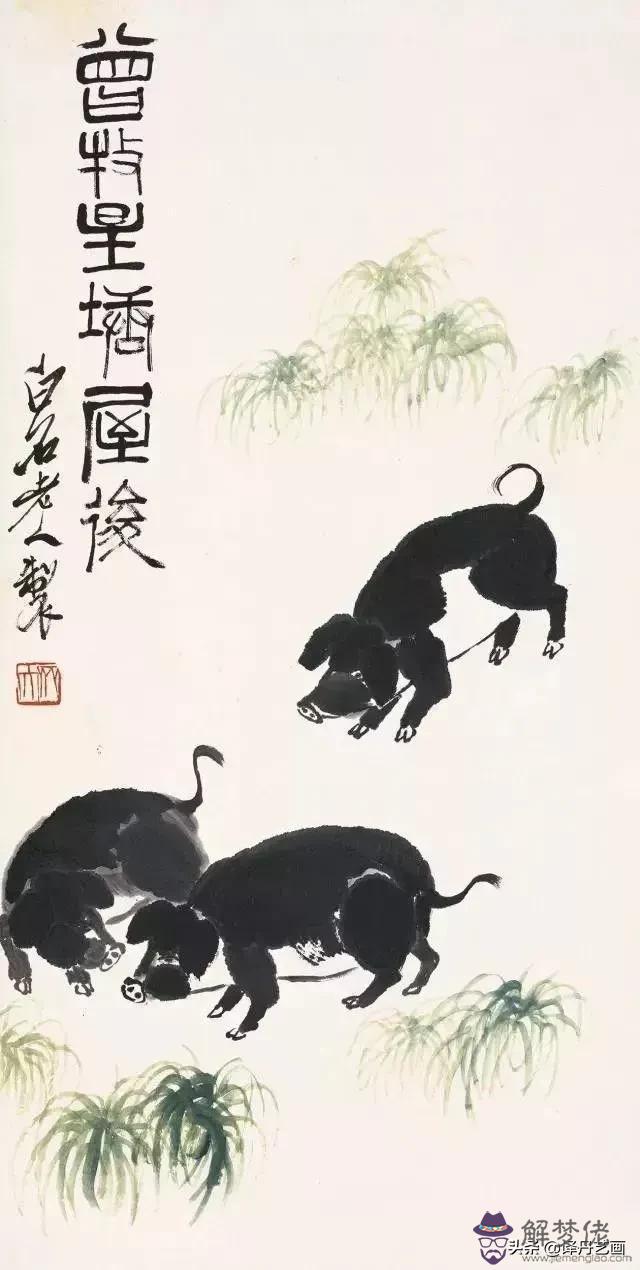 曾牧星塘屋後
白石老人製
解梦佬
头条 @译丹艺画
www.jiemenglao.com